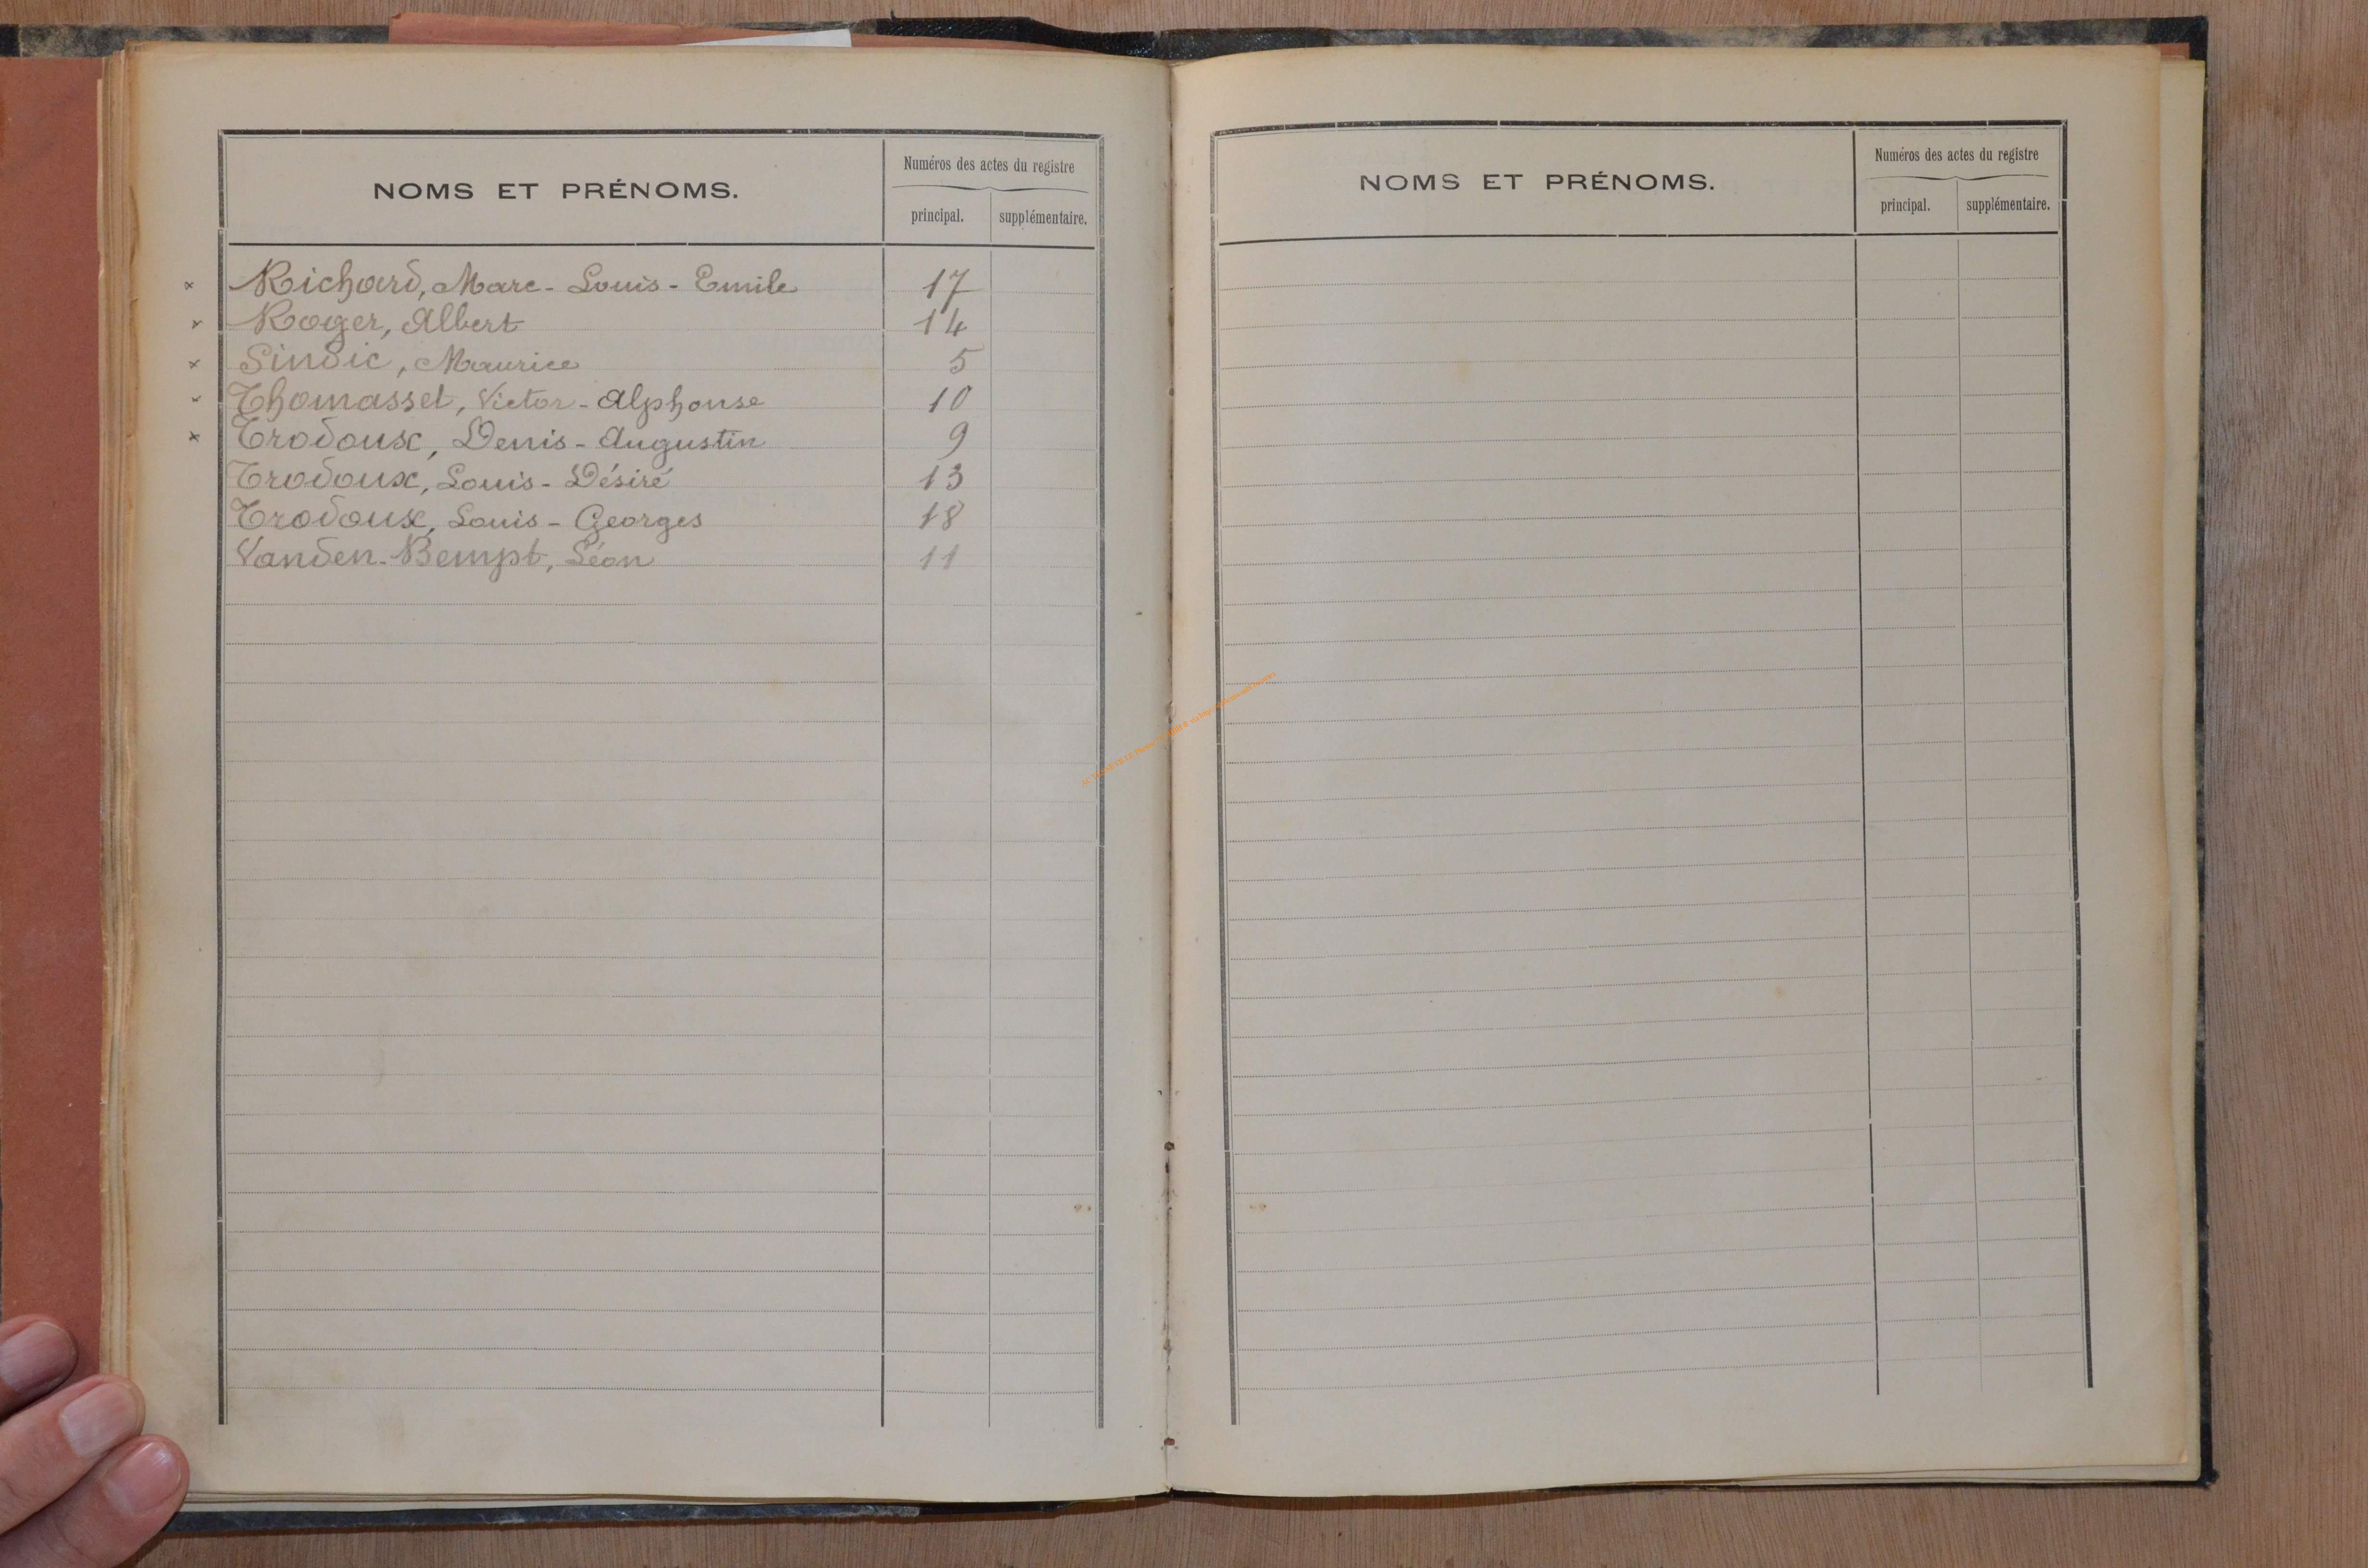 NOMS ET PRÉNOMS.
Numéros des actes du registre
principal. supplémentaire.
Richard, Marc-Louis-Emile 17
Roger, Albert 14
Sindic, Maurice 5
Thomasset, Victor-Alphonse 10
Trodoux, Denis-Augustin 9
Trodoux, Louis-Désiré 13
Trodoux, Louis-Georges 18
Vanden-Bempt, Léon 11
NOMS ET PRÉNOMS.
Numéros des actes du registre
principal. supplémentaire.